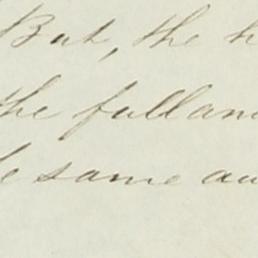 But, the h
the full an
he same au